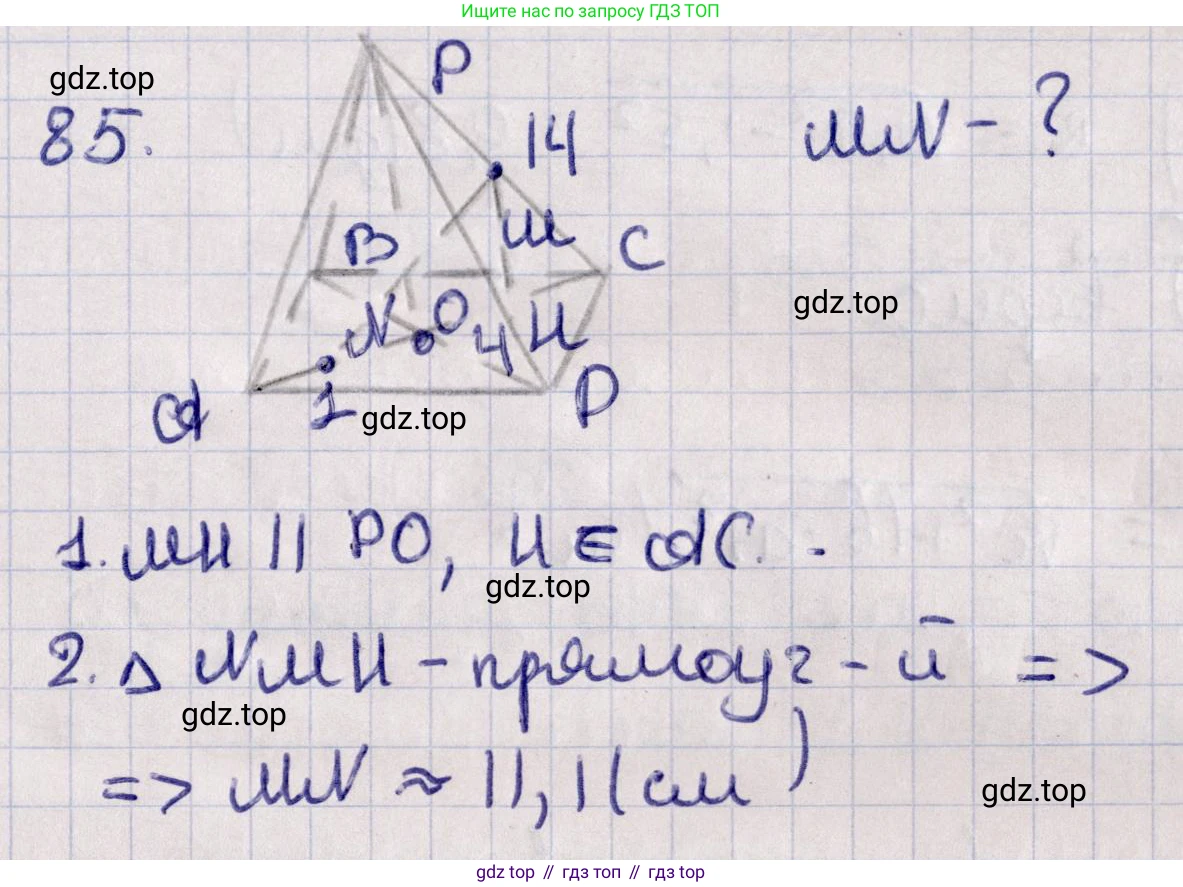 Ищите нас по запросу ГДЗ ТОП
gdz.top
85.
P
14
MN - ?
B
M
C
gdz.top
N
O
4
H
A
1
D
gdz.top
1. MH || PO, H ∈ AC.
gdz.top
2. Δ NMH - прямоуг-й =>
gdz.top
=> MN ≈ 11,1 (см)
gdz.top
gdz top // гдз топ // гдз top